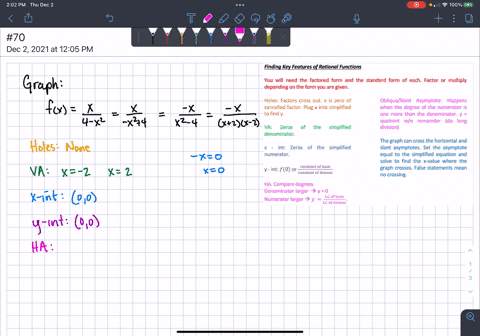 2:02 PM Fri Dec 3
100%
#70
Dec 2, 2021 at 12:05 PM
Graph:
f(x) = x/(4-x²) = x/(-x²+4) = -x/(x²-4) = -x/((x+2)(x-2))
Holes: None
-x=0
VA: x=-2 x=2
x=0
x-int: (0,0)
y-int: (0,0)
HA:
Finding Key Features of Rational Functions
You will need the factored form and the standard form of each. Factor or multiply
depending on the form you are given.
Holes: Factors cross out. x is zero of
cancelled factor. Plug x into simplified
to find y.
VA: Zeros of the simplified
denominator.
x - int: Zeros of the simplified
numerator.
y - int: f(0) or constant of num/constant of denom
HA: Compare degrees.
Denominator larger → y = 0
Numerator larger → y =
Oblique/Slant Asymptote: Happens
when the degree of the numerator is
one more than the denominator. y =
quotient w/o remainder (do long
division)
The graph can cross the horizontal and
slant asymptotes. Set the asymptote
equal to the simplified equation and
solve to find the x-value where the
graph crosses. False statements mean
no crossing.